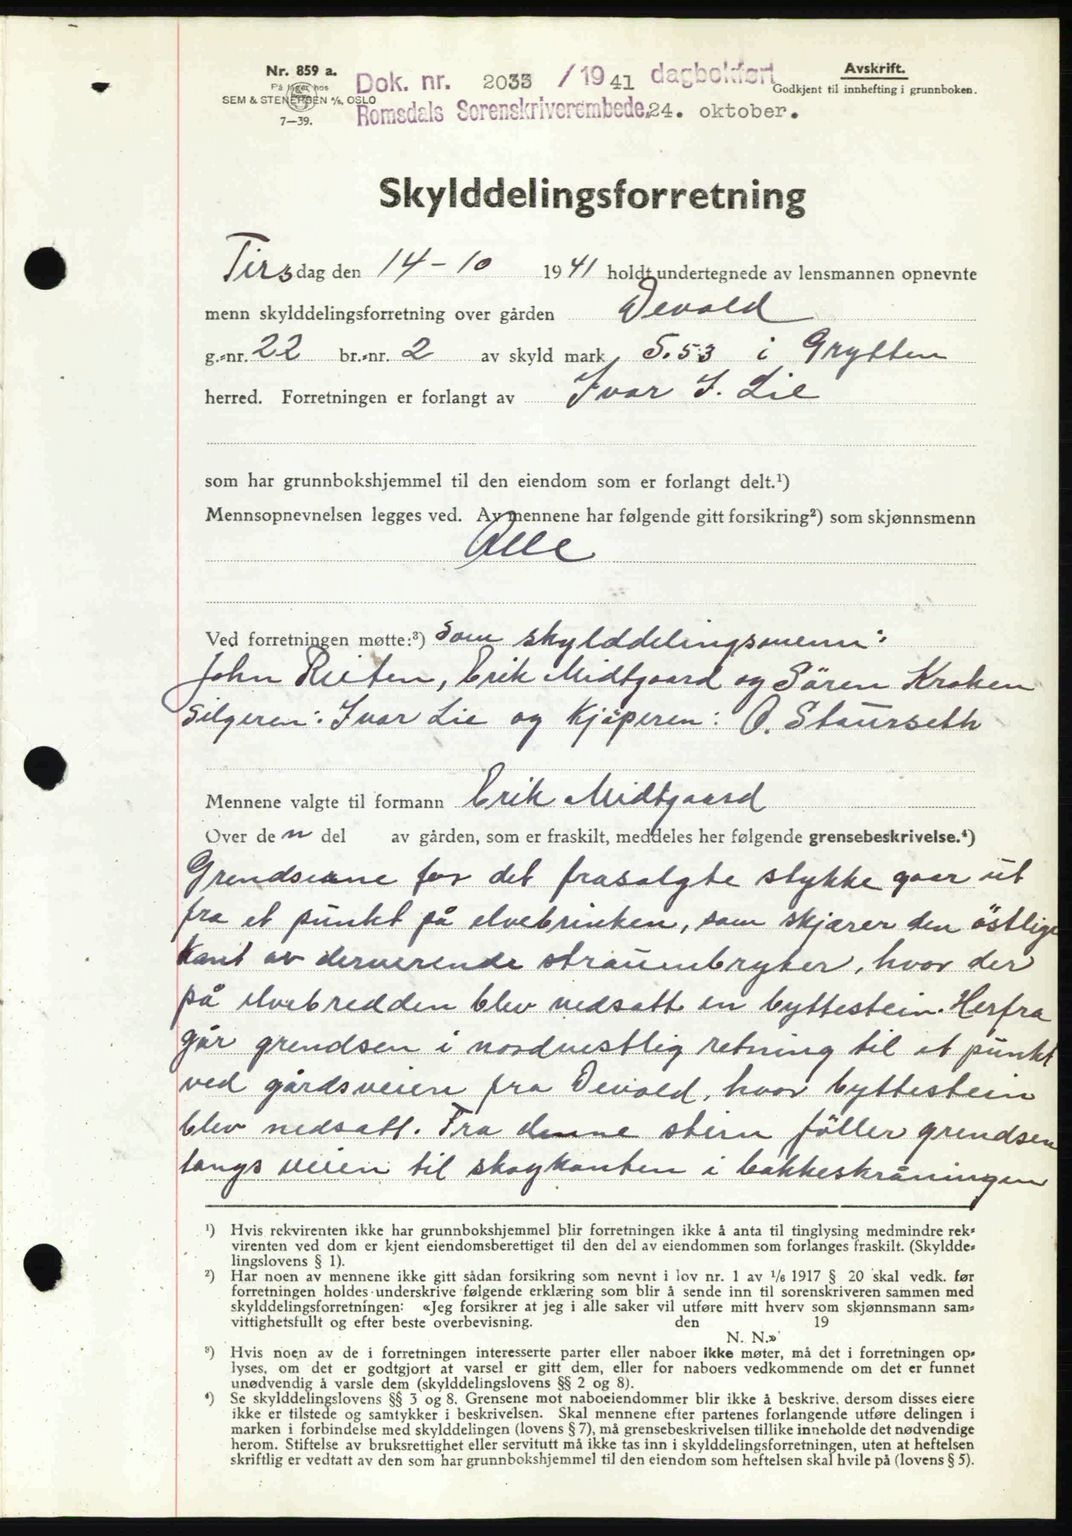 Nr. 859 a.
På lager hos
SEM & STENERSEN A/S, OSLO
7—39.
Dok. nr. 2033 /1941 dagbokført
Romsdals Sorenskriverembede, 24. oktober.
Avskrift.
Godkjent til innhefting i grunnboken.
Skylddelingsforretning
Tirsdag den 14-10 1941 holdt undertegnede av lensmannen opnevnte
menn skylddelingsforretning over gården Devold
g.-nr. 22 br.-nr. 2 av skyld mark 5.53 i Grytten
herred. Forretningen er forlangt av Ivar I. Lie
som har grunnbokshjemmel til den eiendom som er forlangt delt.¹)
Mennsopnevnelsen legges ved. Av mennene har følgende gitt forsikring²) som skjønnsmenn
Alle
Ved forretningen møtte:³) Som skylddelingsmenn:
John Reiten, Erik Midtgaard og Sören Kroken
Selgeren: Ivar Lie og Kjöperen: O. Staurseth
Mennene valgte til formann Erik Midtgaard
Over den del av gården, som er fraskilt, meddeles her følgende grensebeskrivelse.⁴)
Grendsene for det frasalgte stykke gaar ut
fra et punkt på elvebrinken, som skjærer den östlige
kant av derværende straumbryter, hvor der
på elvebredden blev nedsatt en byttestein. Herfra
går grendsen i nordvestlig retning til et punkt
ved gårdsveien fra Devold, hvor byttestein
blev nedsatt. Fra denne stein föller grendsen
langs veien til skogkanten i bakkeskråningen
¹) Hvis rekvirenten ikke har grunnbokshjemmel blir forretningen ikke å anta til tinglysing medmindre rek-
virenten ved dom er kjent eiendomsberettiget til den del av eiendommen som forlanges fraskilt. (Skyldde-
lingslovens § 1).
²) Har noen av mennene ikke gitt sådan forsikring som nevnt i lov nr. 1 av 1/6 1917 § 20 skal vedk. før
forretningen holdes underskrive følgende erklæring som blir å sende inn til sorenskriveren sammen med
skylddelingsforretningen: «Jeg forsikrer at jeg i alle saker vil utføre mitt hverv som skjønnsmann sam-
vittighetsfullt og efter beste overbevisning. den 19
N. N.»
³) Hvis noen av de i forretningen interesserte parter eller naboer ikke møter, må det i forretningen op-
lyses, om det er godtgjort at varsel er gitt dem, eller for naboers vedkommende om det er funnet
unødvendig å varsle dem (skylddelingslovens §§ 2 og 8).
⁴) Se skylddelingslovens §§ 3 og 8. Grensene mot naboeiendommer blir ikke å beskrive, dersom disses eiere
ikke er tilstede og samtykker i beskrivelsen. Skal mennene efter partenes forlangende utføre delingen i
marken i forbindelse med skylddelingen (lovens § 7), må grensebeskrivelsen tillike inneholde det nødvendige
herom. Stiftelse av bruksrettighet eller servitutt må ikke tas inn i skylddelingsforretningen, uten at heftelsen
skriftlig er vedtatt av den som har grunnbokshjemmel til den eiendom som heftelsen skal hvile på (lovens § 5).